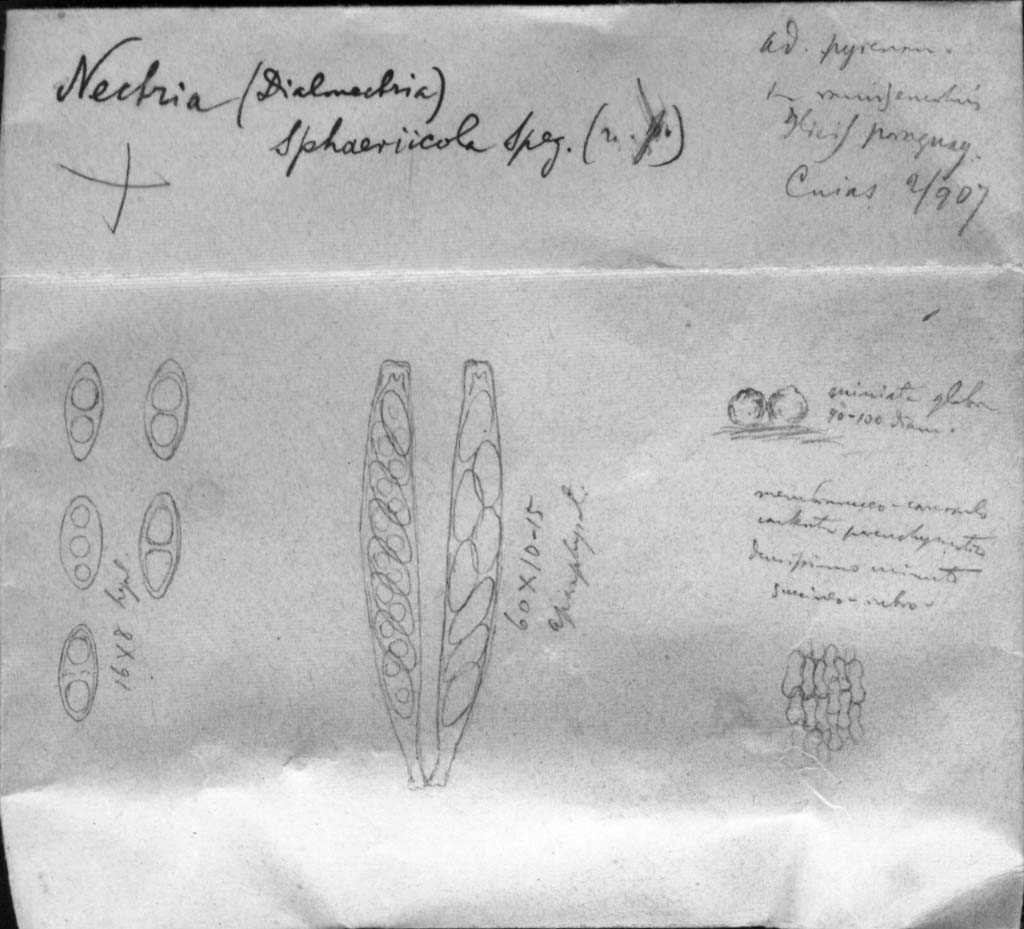 Nectria (Dialonectria)
Sphaeriicola Speg. (n. sp.)
ad. pyrenom.
Ilicis paraguay.
Cuias 2/907
16x8 hyal
60x10-15
aparaphysat.
miniata glabra
90-100 diam.
membranaceo-carnosulo
contextu parenchymatico
densissimo minuto
-rubro-